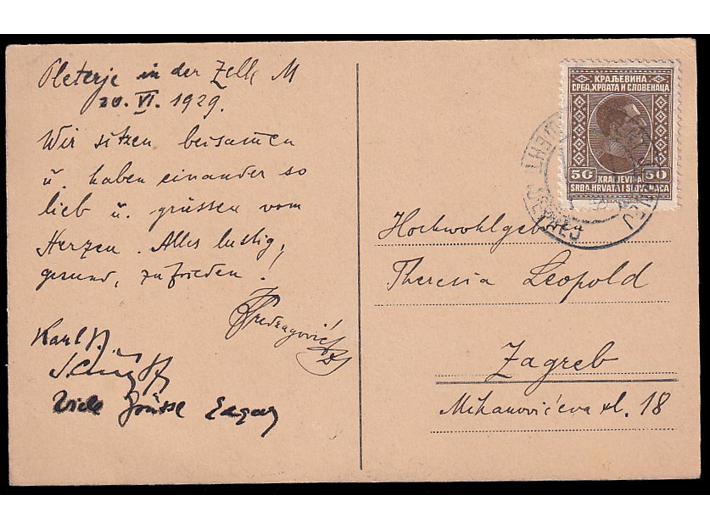 Pleterje in der Zelle M
20. VI. 1929.
Wir sitzen beisamen
u. haben einander so
lieb u. grüssen vom
Herzen. Alles lustig,
gesund, zufrieden!
Karl
Viele Grüsse
КРАЉЕВИНА
СРБА, ХРВАТА И СЛОВЕНАЦА
50 50
KRALJEVINA
SRBA, HRVATA I SLOVENACA
Hochwohlgeb
Theresia Leopold
Zagreb
Mihanovićeva ul. 18